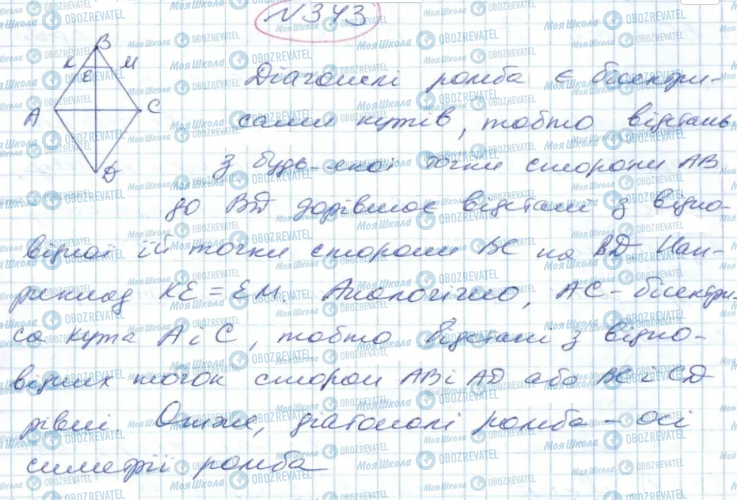 №343
B
K E M
Діагоналі ромба є бісектри-
A C
сами кутів, тобто відстань
з будь-якої точки сторони AB
D
до BD дорівнює відстані з відпо-
відної їй точки сторони BC на BD. Нап-
риклад KE = EM. Аналогічно, AC - бісектри-
са кута A і C, тобто відстані з відпо-
відних точок сторон AB і AD або BC і CD
рівні. Отже, діагоналі ромба - осі
симетрії ромба